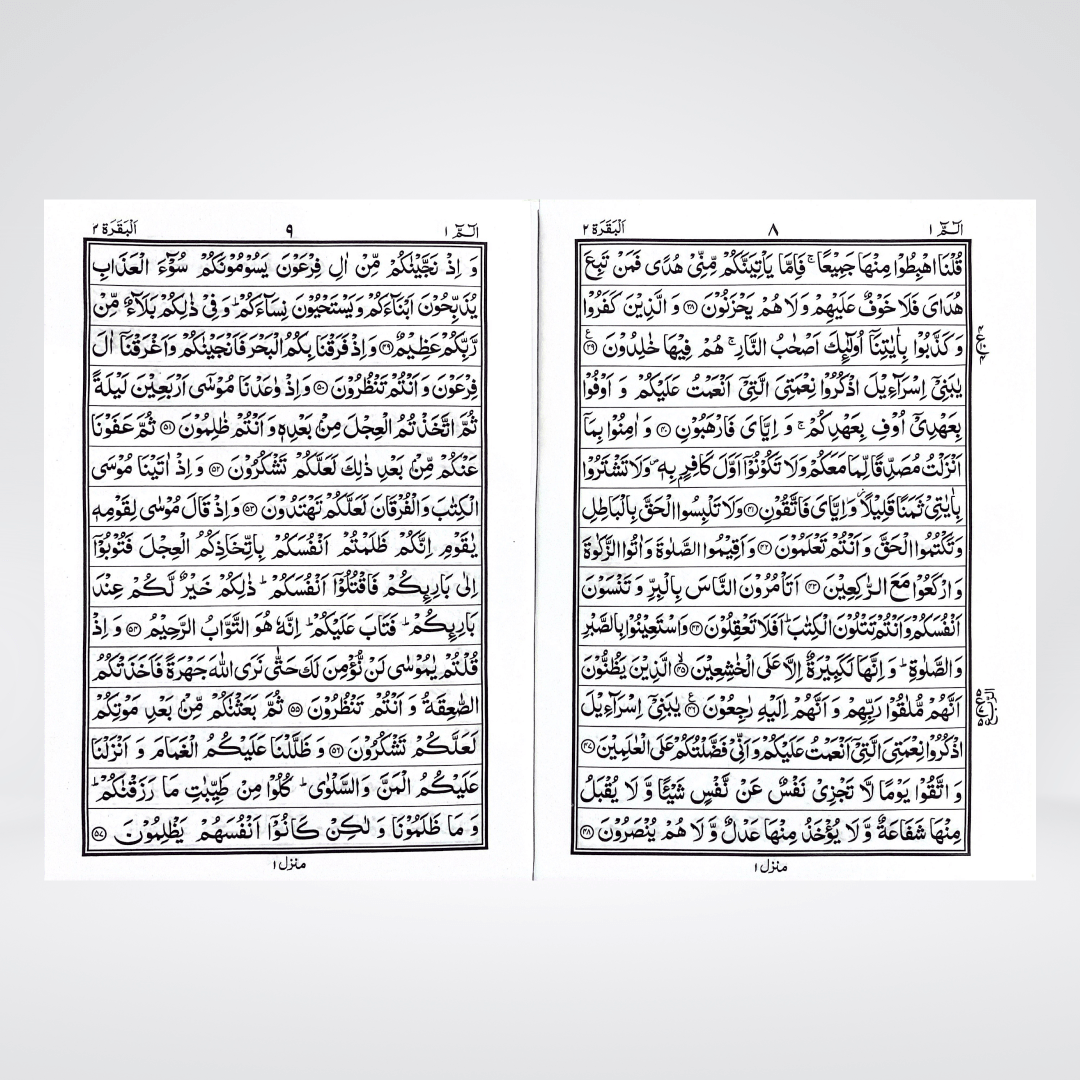 الٓـمّٓ ١
٨
اَلْبَقَرَة ٢
قُلْنَا اهْبِطُوْا مِنْهَا جَمِيْعًا ۚ فَاِمَّا يَاْتِيَنَّكُمْ مِّنِّىْ هُدًى فَمَنْ تَبِعَ
هُدَاىَ فَلَا خَوْفٌ عَلَيْهِمْ وَلَا هُمْ يَحْزَنُوْنَ ﴿٣٨﴾ وَ الَّذِيْنَ كَفَرُوْا
وَ كَذَّبُوْا بِاٰيٰتِنَاۤ اُولٰٓئِكَ اَصْحٰبُ النَّارِ ۚ هُمْ فِيْهَا خٰلِدُوْنَ ﴿٣٩﴾
يٰبَنِىْۤ اِسْرَآءِيْلَ اذْكُرُوْا نِعْمَتِىَ الَّتِىْۤ اَنْعَمْتُ عَلَيْكُمْ وَ اَوْفُوْا
بِعَهْدِىْۤ اُوْفِ بِعَهْدِكُمْ ۚ وَ اِيَّاىَ فَارْهَبُوْنِ ﴿٤٠﴾ وَ اٰمِنُوْا بِمَاۤ
اَنْزَلْتُ مُصَدِّقًا لِّمَا مَعَكُمْ وَلَا تَكُوْنُوْۤا اَوَّلَ كَافِرٍۭ بِهٖ ۪ وَلَا تَشْتَرُوْا
بِاٰيٰتِىْ ثَمَنًا قَلِيْلًا ؗ وَّ اِيَّاىَ فَاتَّقُوْنِ ﴿٤١﴾ وَلَا تَلْبِسُوا الْحَقَّ بِالْبَاطِلِ
وَتَكْتُمُوا الْحَقَّ وَ اَنْتُمْ تَعْلَمُوْنَ ﴿٤٢﴾ وَ اَقِيْمُوا الصَّلٰوةَ وَ اٰتُوا الزَّكٰوةَ
وَ ارْكَعُوْا مَعَ الرّٰكِعِيْنَ ﴿٤٣﴾ اَتَاْمُرُوْنَ النَّاسَ بِالْبِرِّ وَ تَنْسَوْنَ
اَنْفُسَكُمْ وَ اَنْتُمْ تَتْلُوْنَ الْكِتٰبَ ؕ اَفَلَا تَعْقِلُوْنَ ﴿٤٤﴾ وَاسْتَعِيْنُوْا بِالصَّبْرِ
وَ الصَّلٰوةِ ؕ وَ اِنَّهَا لَكَبِيْرَةٌ اِلَّا عَلَى الْخٰشِعِيْنَ ﴿٤٥﴾ الَّذِيْنَ يَظُنُّوْنَ
اَنَّهُمْ مُّلٰقُوْا رَبِّهِمْ وَ اَنَّهُمْ اِلَيْهِ رٰجِعُوْنَ ﴿٤٦﴾ يٰبَنِىْۤ اِسْرَآءِيْلَ
اذْكُرُوْا نِعْمَتِىَ الَّتِىْۤ اَنْعَمْتُ عَلَيْكُمْ وَ اَنِّىْ فَضَّلْتُكُمْ عَلَى الْعٰلَمِيْنَ ﴿٤٧﴾
وَ اتَّقُوْا يَوْمًا لَّا تَجْزِىْ نَفْسٌ عَنْ نَّفْسٍ شَيْـًٔا وَّ لَا يُقْبَلُ
مِنْهَا شَفَاعَةٌ وَّ لَا يُؤْخَذُ مِنْهَا عَدْلٌ وَّ لَا هُمْ يُنْصَرُوْنَ ﴿٤٨﴾
منزل ١
الٓـمّٓ ١
٩
اَلْبَقَرَة ٢
وَ اِذْ نَجَّيْنٰكُمْ مِّنْ اٰلِ فِرْعَوْنَ يَسُوْمُوْنَكُمْ سُوْٓءَ الْعَذَابِ
يُذَبِّحُوْنَ اَبْنَآءَكُمْ وَ يَسْتَحْيُوْنَ نِسَآءَكُمْ ؕ وَ فِىْ ذٰلِكُمْ بَلَآءٌ مِّنْ
رَّبِّكُمْ عَظِيْمٌ ﴿٤٩﴾ وَ اِذْ فَرَقْنَا بِكُمُ الْبَحْرَ فَاَنْجَيْنٰكُمْ وَ اَغْرَقْنَاۤ اٰلَ
فِرْعَوْنَ وَ اَنْتُمْ تَنْظُرُوْنَ ﴿٥٠﴾ وَ اِذْ وٰعَدْنَا مُوْسٰٓى اَرْبَعِيْنَ لَيْلَةً
ثُمَّ اتَّخَذْتُمُ الْعِجْلَ مِنْۢ بَعْدِهٖ وَ اَنْتُمْ ظٰلِمُوْنَ ﴿٥١﴾ ثُمَّ عَفَوْنَا
عَنْكُمْ مِّنْۢ بَعْدِ ذٰلِكَ لَعَلَّكُمْ تَشْكُرُوْنَ ﴿٥٢﴾ وَ اِذْ اٰتَيْنَا مُوْسَى
الْكِتٰبَ وَ الْفُرْقَانَ لَعَلَّكُمْ تَهْتَدُوْنَ ﴿٥٣﴾ وَ اِذْ قَالَ مُوْسٰى لِقَوْمِهٖ
يٰقَوْمِ اِنَّكُمْ ظَلَمْتُمْ اَنْفُسَكُمْ بِاتِّخَاذِكُمُ الْعِجْلَ فَتُوْبُوْۤا
اِلٰى بَارِئِكُمْ فَاقْتُلُوْۤا اَنْفُسَكُمْ ؕ ذٰلِكُمْ خَيْرٌ لَّكُمْ عِنْدَ
بَارِئِكُمْ ؕ فَتَابَ عَلَيْكُمْ ؕ اِنَّهٗ هُوَ التَّوَّابُ الرَّحِيْمُ ﴿٥٤﴾ وَ اِذْ
قُلْتُمْ يٰمُوْسٰى لَنْ نُّؤْمِنَ لَكَ حَتّٰى نَرَى اللّٰهَ جَهْرَةً فَاَخَذَتْكُمُ
الصّٰعِقَةُ وَ اَنْتُمْ تَنْظُرُوْنَ ﴿٥٥﴾ ثُمَّ بَعَثْنٰكُمْ مِّنْۢ بَعْدِ مَوْتِكُمْ
لَعَلَّكُمْ تَشْكُرُوْنَ ﴿٥٦﴾ وَ ظَلَّلْنَا عَلَيْكُمُ الْغَمَامَ وَ اَنْزَلْنَا
عَلَيْكُمُ الْمَنَّ وَ السَّلْوٰى ؕ كُلُوْا مِنْ طَيِّبٰتِ مَا رَزَقْنٰكُمْ ؕ
وَ مَا ظَلَمُوْنَا وَ لٰكِنْ كَانُوْۤا اَنْفُسَهُمْ يَظْلِمُوْنَ ﴿٥٧﴾
منزل ١